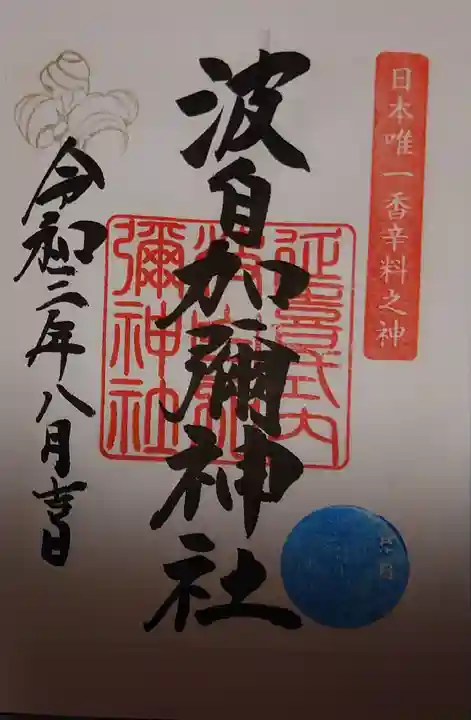 日本唯一香辛料之神
波自加彌神社
延喜式内
波自加
彌神社
令和二年八月吉日